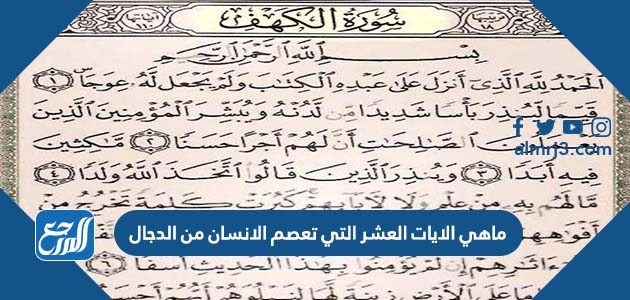 سُورَةُ الكَهْفِ
ترتيبها ١٨
آياتها ١١٠
بِسْمِ اللَّهِ الرَّحْمَٰنِ الرَّحِيمِ
الْحَمْدُ لِلَّهِ الَّذِي أَنزَلَ عَلَىٰ عَبْدِهِ الْكِتَابَ وَلَمْ يَجْعَل لَّهُ عِوَجًا ١
قَيِّمًا لِّيُنذِرَ بَأْسًا شَدِيدًا مِّن لَّدُنْهُ وَيُبَشِّرَ الْمُؤْمِنِينَ الَّذِينَ
الصَّالِحَاتِ أَنَّ لَهُمْ أَجْرًا حَسَنًا ٢ مَّاكِثِينَ
فِيهِ أَبَدًا ٣ وَيُنذِرَ الَّذِينَ قَالُوا اتَّخَذَ اللَّهُ وَلَدًا ٤
مَّا لَهُم بِهِ مِنْ عِلْمٍ وَلَا لِآبَائِهِمْ كَبُرَتْ كَلِمَةً تَخْرُجُ مِنْ
أَفْوَاهِهِمْ
ءَاثَارِهِمْ إِن لَّمْ يُؤْمِنُوا بِهَٰذَا الْحَدِيثِ أَسَفًا ٦
مَا عَلَى الْأَرْضِ زِينَةً لَّهَا لِنَبْلُوَهُمْ أَيُّهُمْ أَحْسَنُ
almrj3.com
المرجع
ماهي الايات العشر التي تعصم الانسان من الدجال